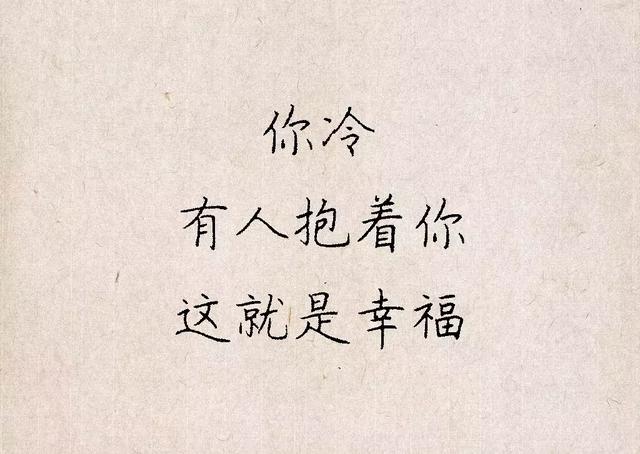 你冷
有人抱着你
这就是幸福